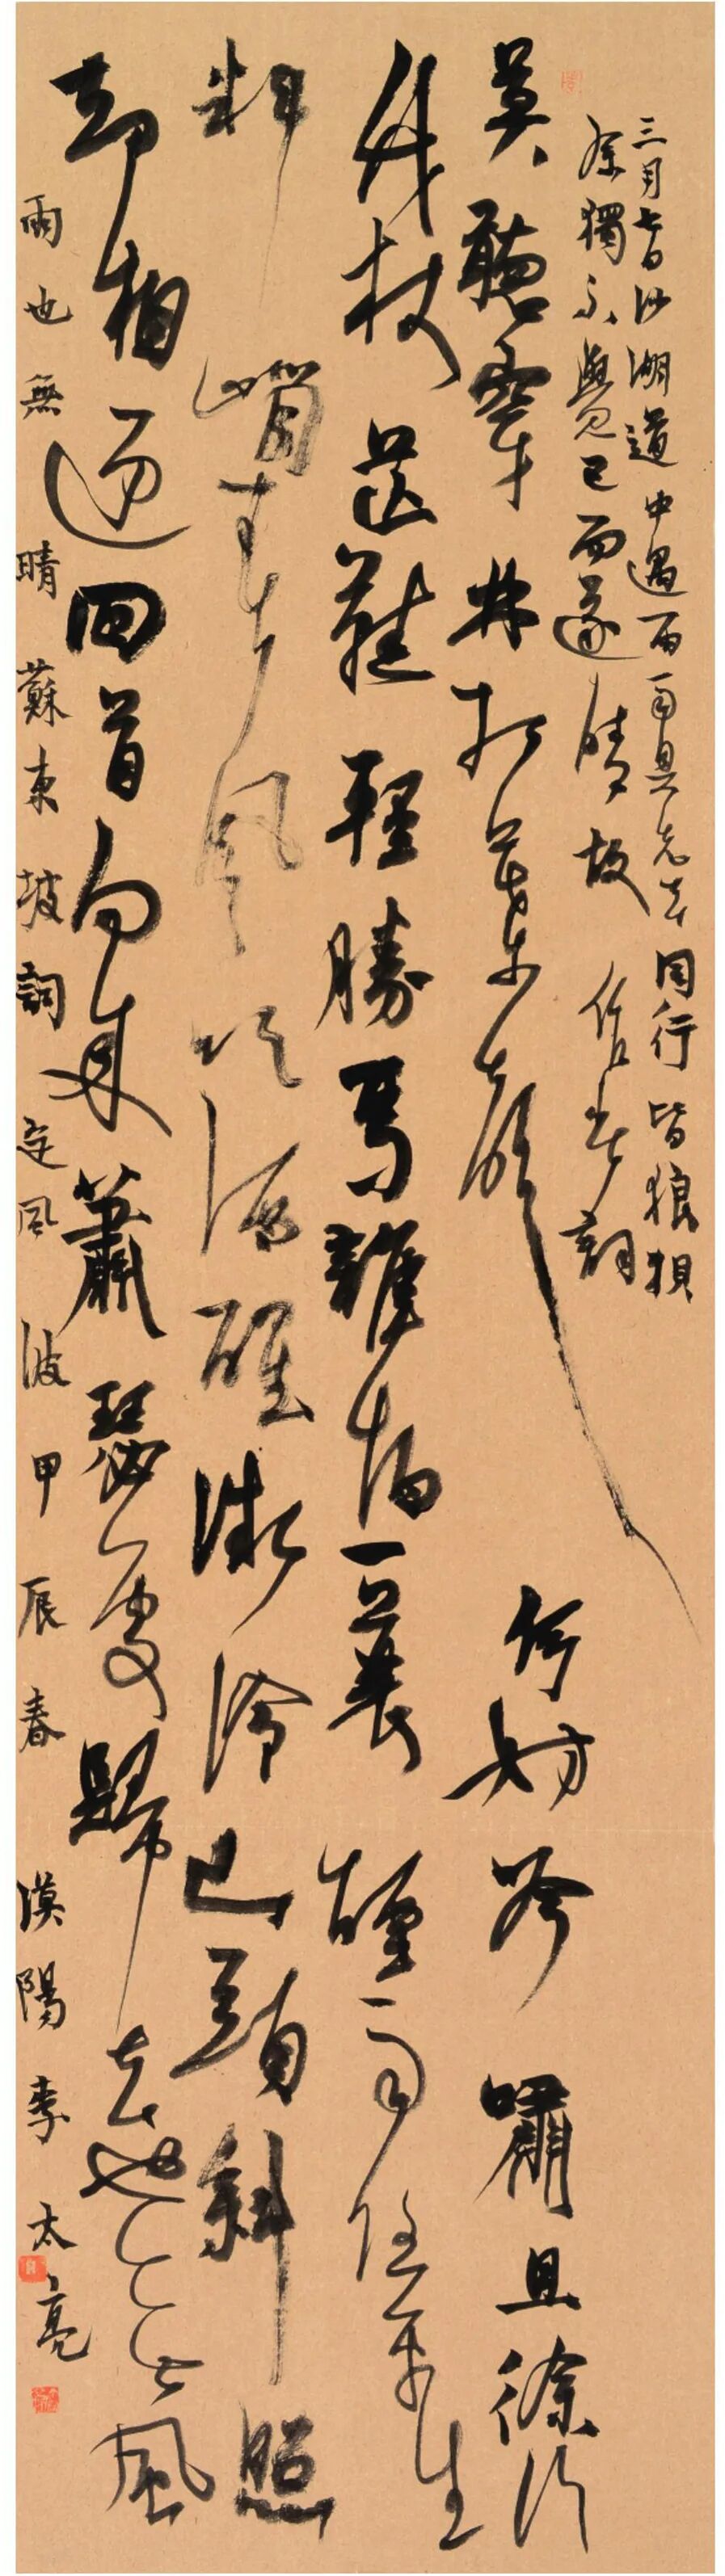 三月七日沙湖道中遇雨雨具先去同行皆狼狽
余獨不覺已而遂晴故作此詞
莫聽穿林打葉聲何妨吟嘯且徐行
竹杖芒鞋輕勝馬誰怕一蓑煙雨任平生
料峭春風吹酒醒微冷山頭斜照
却相迎回首向來蕭瑟處歸去也無風
雨也無晴蘇東坡詞定風波甲辰春漢陽李太亮